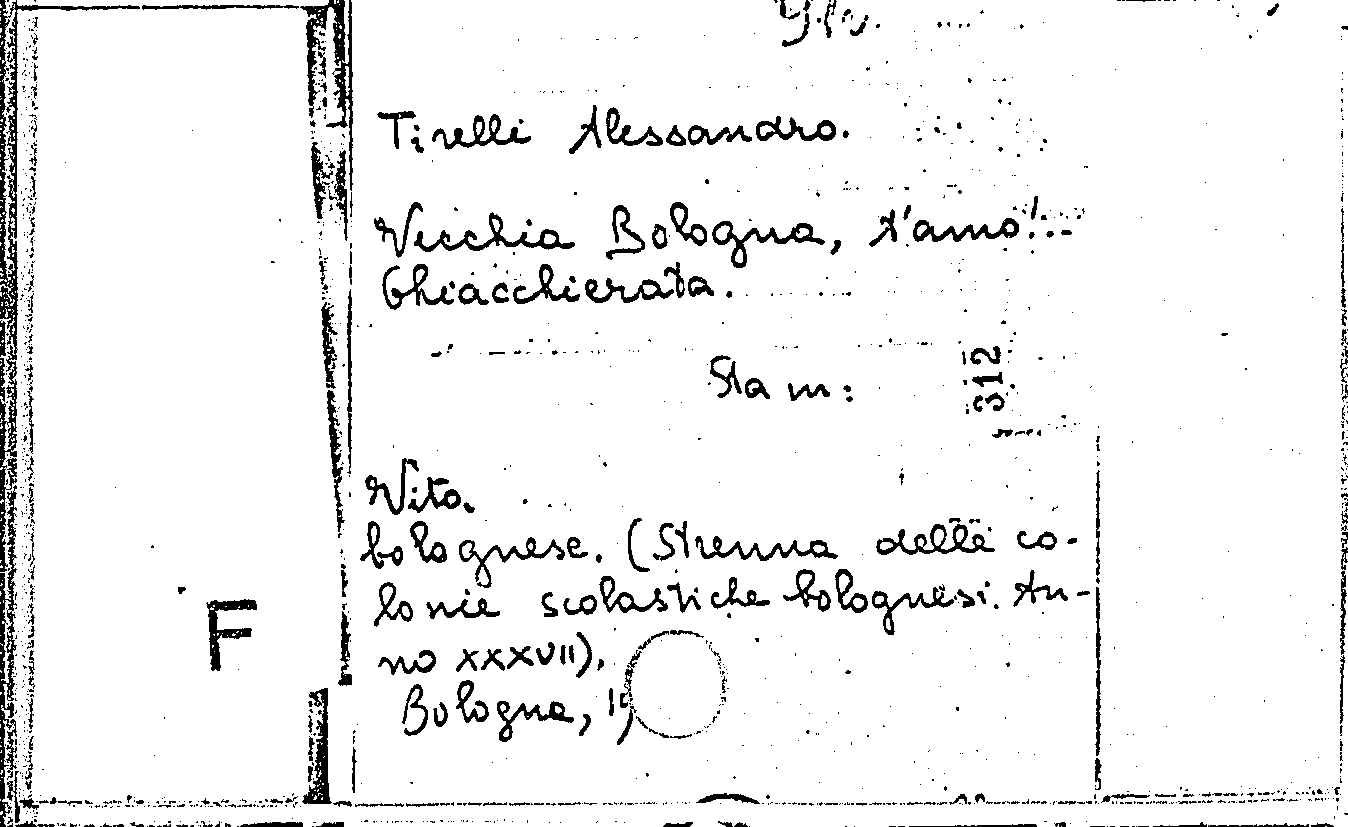 Tirelli Alessandro.
Vecchia Bologna, t'amo!..
Chiacchierata.
Sta in:
312
Vita
bolognese. (Strenna delle co-
lonie scolastiche bolognesi. An-
no XXXVII),
F
Bologna, 19